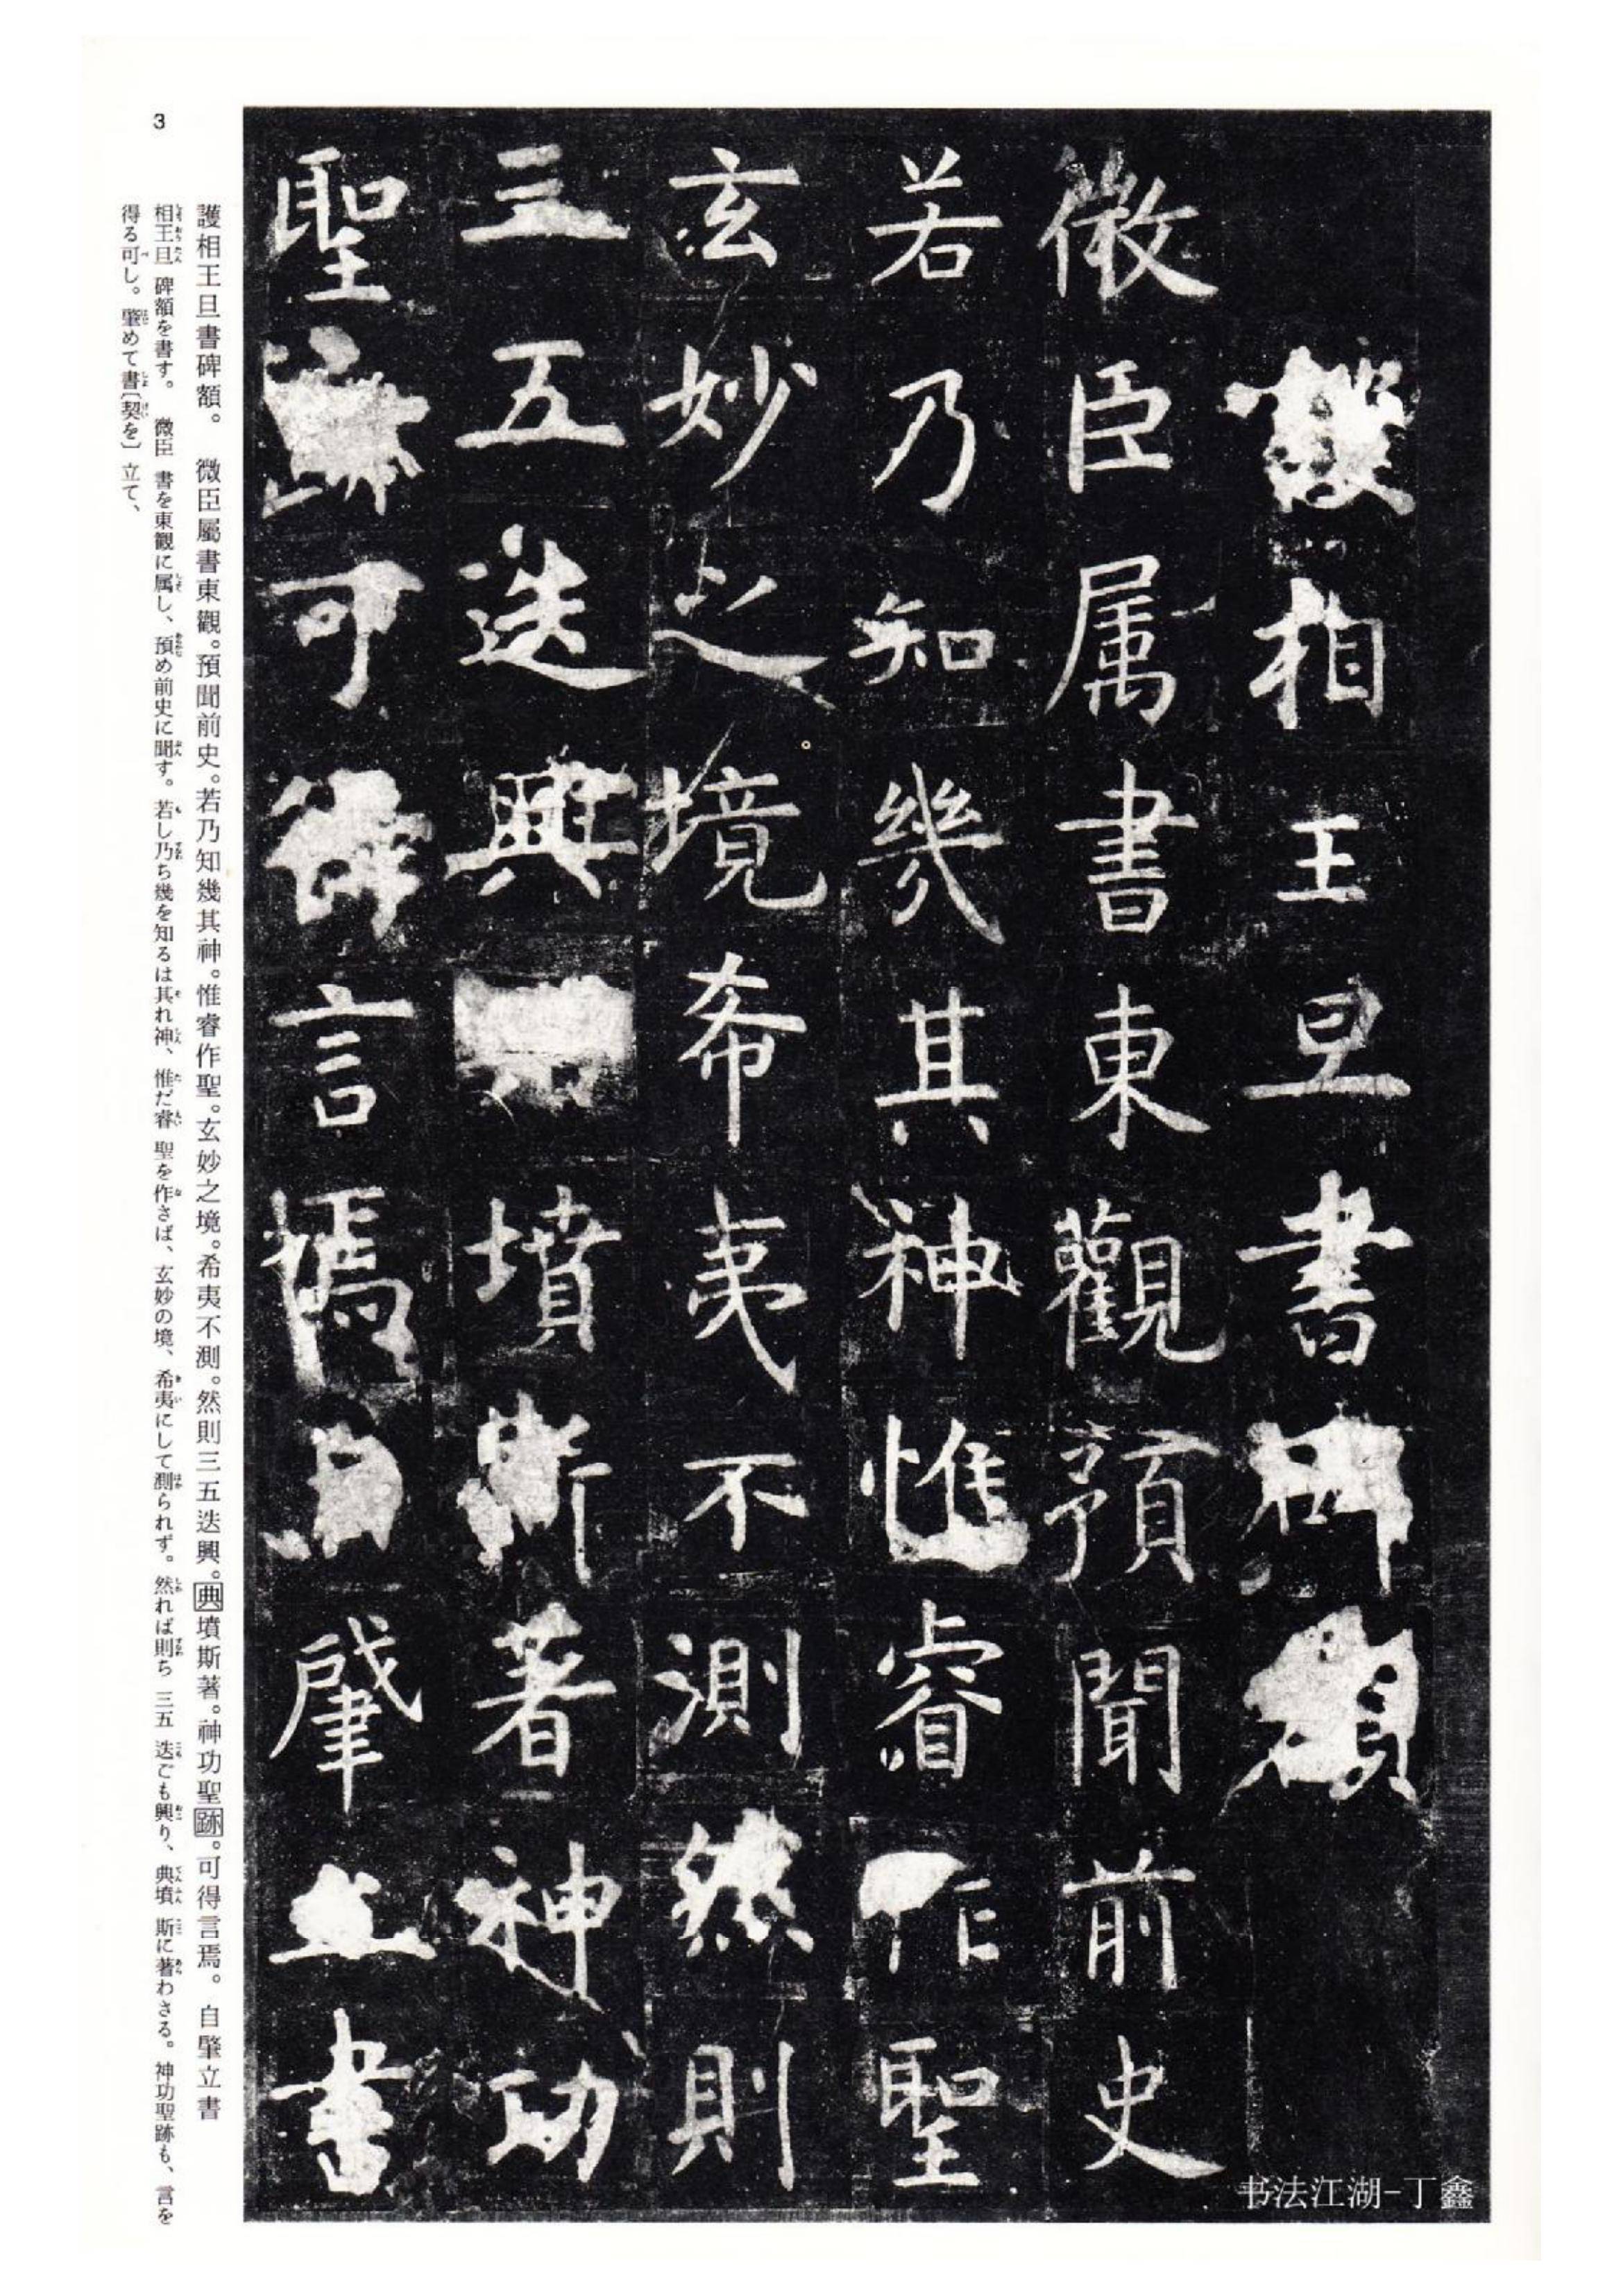 護相王旦書碑額
微臣属書東觀預聞前史
若乃知幾其神惟睿作聖
玄妙之境希夷不測然則
三五迭興墳斯著神功
聖可得言焉自肇立書
護相王旦書碑額。 微臣屬書東觀。預聞前史。若乃知幾其神。惟睿作聖。玄妙之境。希夷不測。然則三五迭興。典墳斯著。神功聖跡。可得言焉。 自肇立書
相王旦 碑額を書す。 微臣 書を東観に属し、預め前史に聞す。若し乃ち幾を知るは其れ神、惟だ睿 聖を作さば、玄妙の境、希夷にして測られず。然れば則ち 三五 迭ごも興り、典墳 斯に著わさる。神功聖跡も、言を
得る可し。肇めて書〔契を〕立て、
3
书法江湖-丁鑫